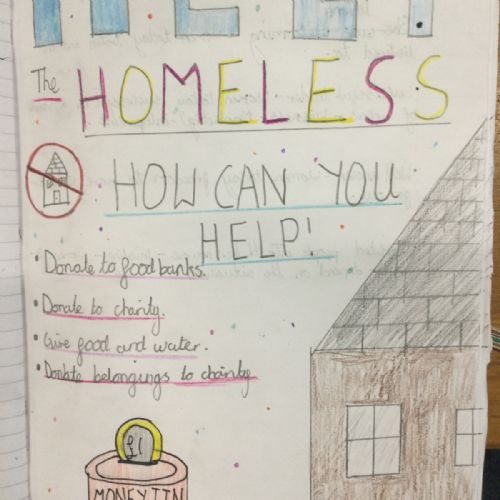 HELP
The HOMELESS
HOW CAN YOU
HELP!
• Donate to food banks.
• Donate to charity.
• Give food and water.
• Donate belongings to charity
£1
MONEY TIN